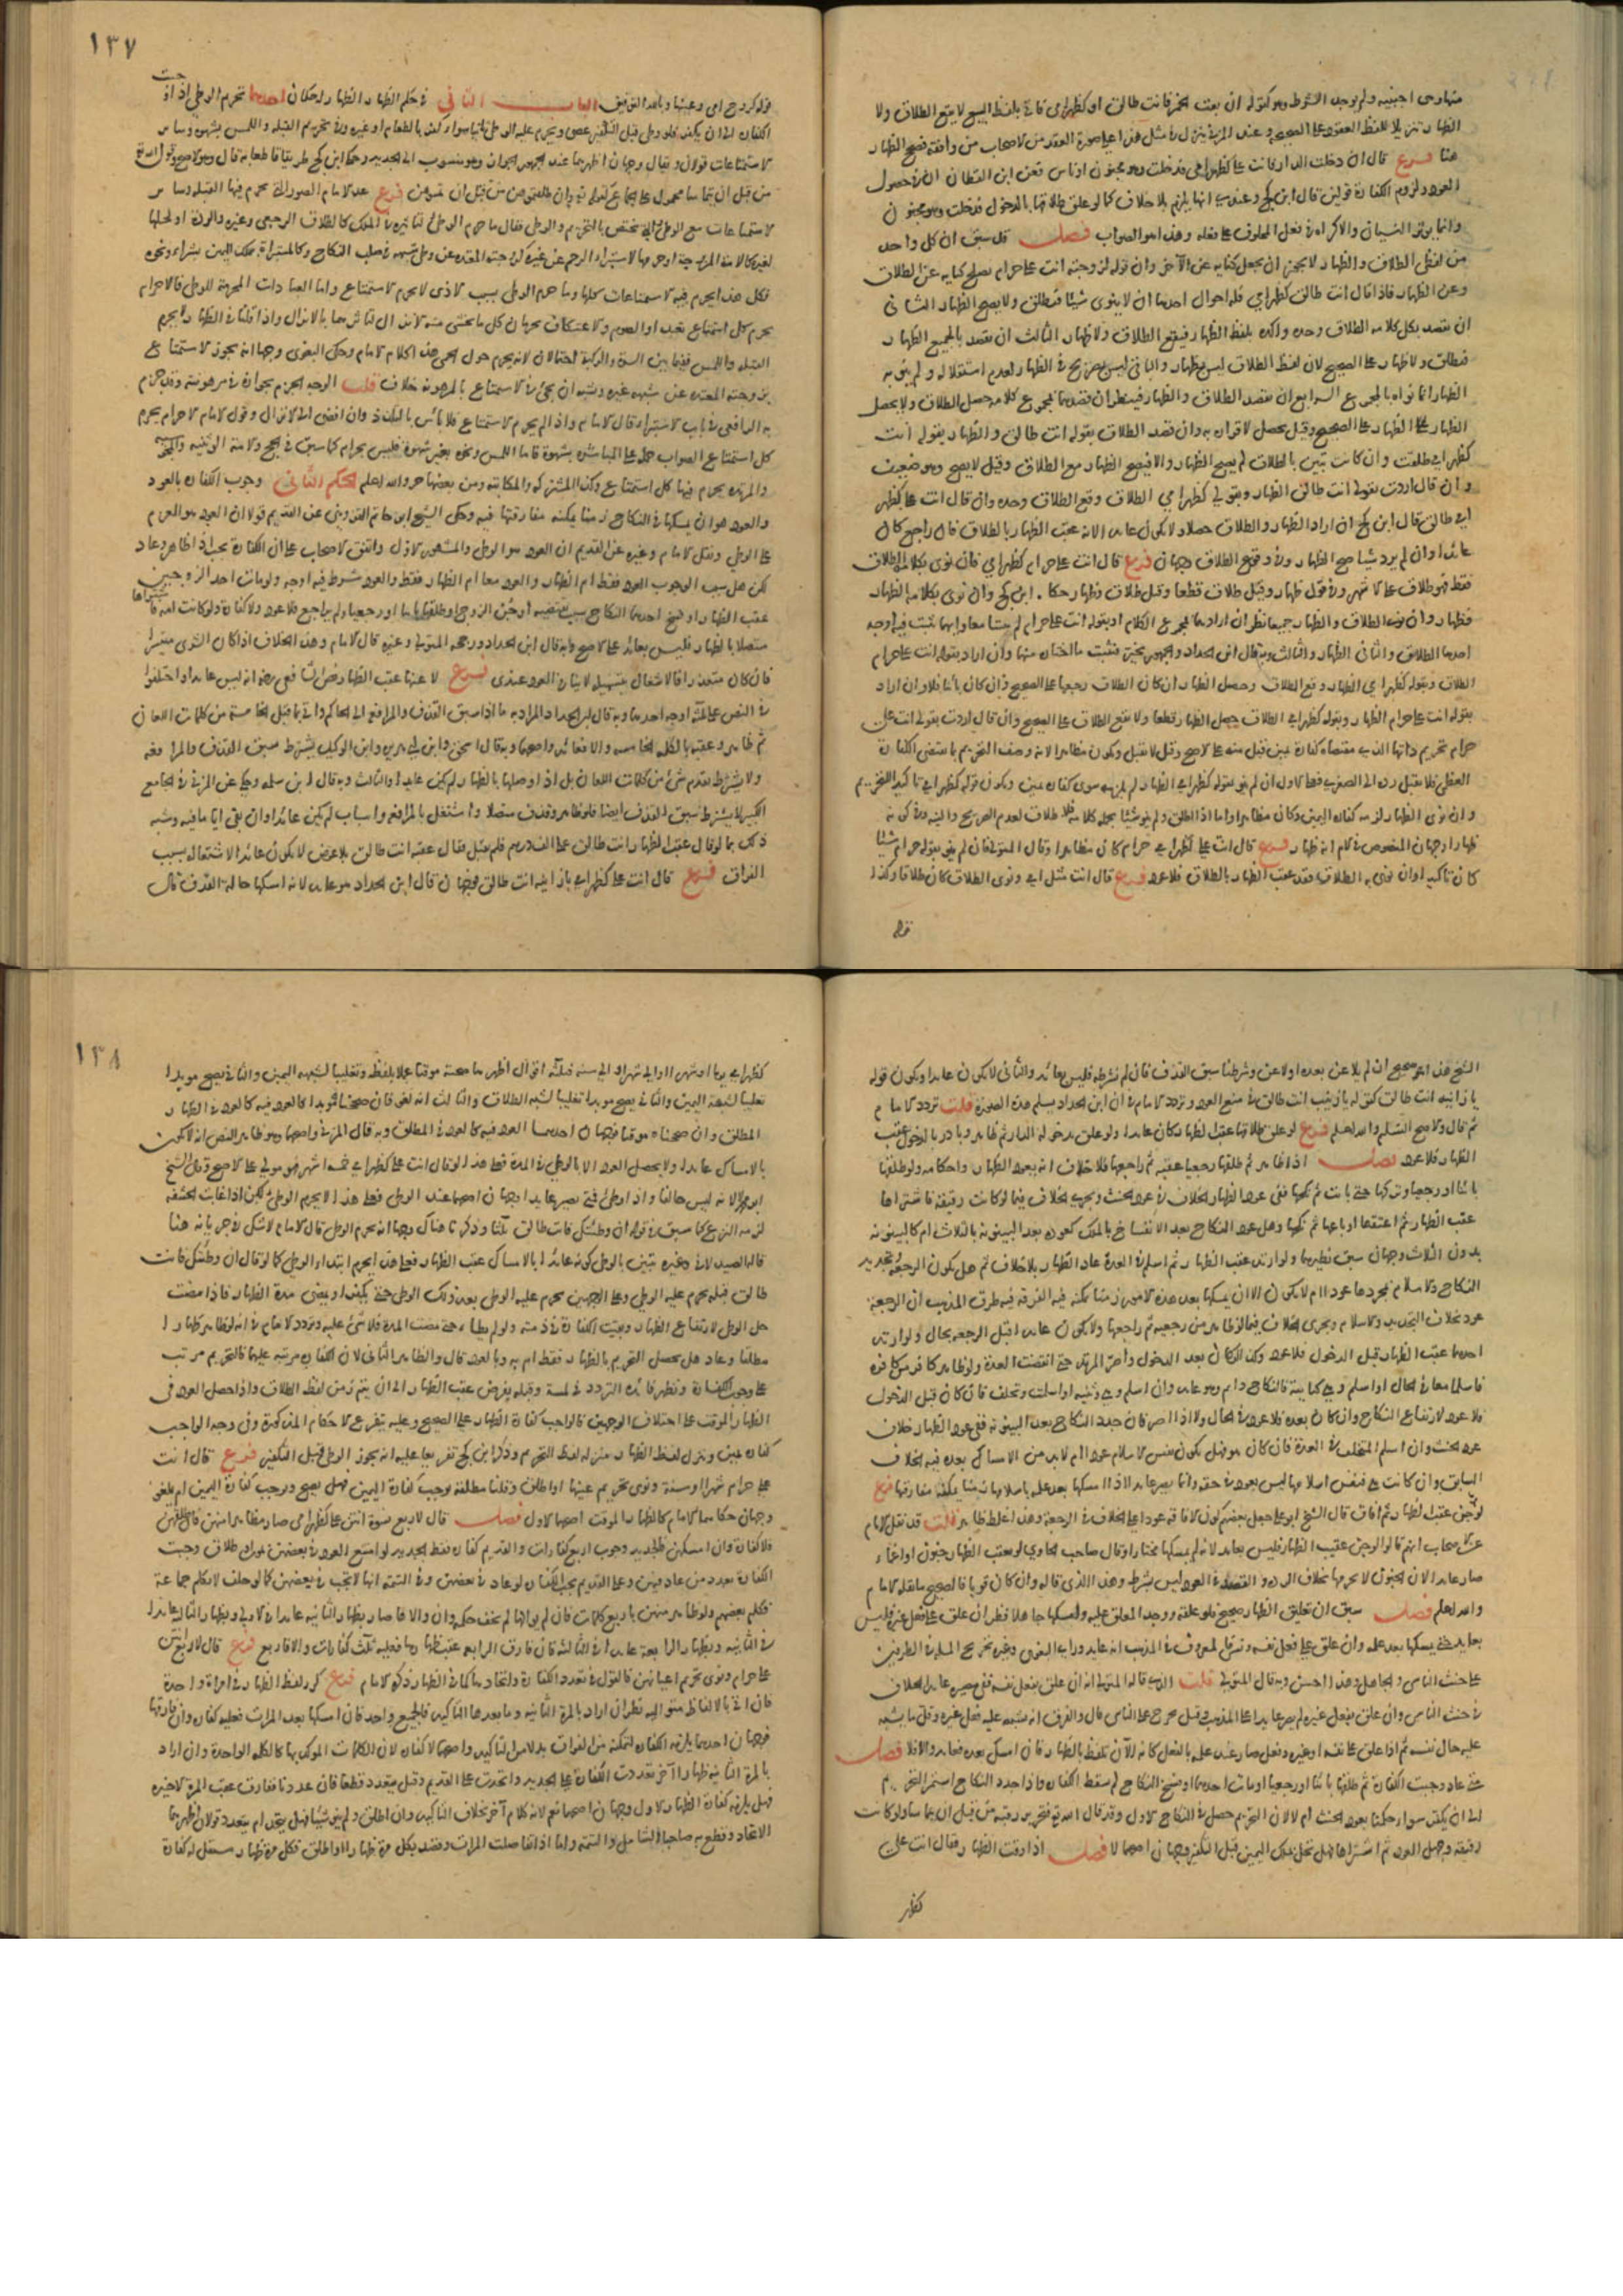 منها وهي اجنبيه ولم يوجد الشرط وهو كقوله ان بعت الخمر فانت طالق او كظهر امي فاتى بلفظ البيع لا يقع الطلاق ولا
الظهار تنزيلا للفظ العقود على الصحيح وعند المزني ينزل في مثل هذا على صورة العقد من الاصحاب من وافقه فصحح الظهار
هنا فرع قال ان دخلت الدار فانت علي كظهر امي فدخلت وهو مجنون او ناس فعن ابن القطان ان في حصول
العود ولزوم الكفارة قولين قال ابن كج وعندي انها يلزم بلا خلاف كما لو علق طلاقها بالدخول فدخلت وهو مجنون
وانما يوثر النسيان والاكراه في فعل المحلوف على فعله وهذا هو الصواب فصل قد سبق ان كل واحد
من لفظي الطلاق والظهار لا يجوز ان يجعل كناية عن الآخر وان قوله لزوجته انت علي حرام يصلح كنايه عن الطلاق
وعن الظهار فاذا قال انت طالق كظهر امي فله احوال احدها ان لا ينوي شيئا فتطلق ولا يصح الظهار الثاني
ان يقصد بكل كلامه الطلاق وحده واكده بلفظ الظهار فيقع الطلاق ولا ظهار الثالث ان يقصد بالجميع الظهار
فتطلق ولا ظهار على الصحيح لان لفظ الطلاق ليس بظهار والباقي ليس بصريح في الظهار لعدم استقلاله ولم ينو به
الظهار انما نواه بالمجموع الرابع ان يقصد الطلاق والظهار فينظر ان قصدهما بمجموع كلامه حصل الطلاق ولا يحصل
الظهار على الصحيح وقيل يحصل لاقراره به وان قصد الطلاق بقوله انت طالق والظهار بقوله انت
كظهر امي طلقت وان كانت تبين بالطلاق لم يصح الظهار والا فيصح الظهار مع الطلاق وقيل لا يصح وهو ضعيف
وان قال اردت بقولي انت طالق الظهار وبقولي كظهر امي الطلاق وقع الطلاق وحده وان قال انت علي كظهر
امي طالق قال ابن كج ان اراد الظهار والطلاق حصلا ولا يكون عايدا لانه عقب الظهار بالطلاق فان راجع كان
عائدا وان لم يرد شيا صح الظهار وفي وقوع الطلاق وجهان فرع قال انت علي حرام كظهر امي فان نوى بكلامه الطلاق
فقط فهو طلاق على الاشهر وفي قول ظهار وقيل طلاق قطعا وقيل طلاق وظهار حكاه ابن كج وان نوى بكلامه الظهار
فظهار وان نوى الطلاق والظهار جميعا نظر ان ارادهما بمجموع الكلام او بقوله انت علي حرام لم يثبتا معا وايهما يثبت فيه اوجه
احدها الطلاق والثاني الظهار والثالث وبه قال ابن الحداد والجمهور يتخير فيثبت ما اختاره منهما وان اراد بقوله انت علي حرام
الطلاق وبقوله كظهر امي الظهار وقع الطلاق وحصل الظهار ان كان الطلاق رجعيا على الصحيح وان كان بائنا فلا وان اراد
بقوله انت علي حرام الظهار وبقوله كظهر امي الطلاق حصل الظهار قطعا ولا يقع الطلاق على الصحيح وان قال اردت بقولي انت علي
حرام تحريم ذاتها الذي مقتضاه كفارة يمين قبل منه على الاصح وقيل لا يقبل ويكون مظاهرا لانه وصف التحريم بما يقتضي الكفارة
العظمى فلا يقبل رده الى الصغرى فعلى الاول ان لم ينو بقوله كظهر امي الظهار لم يلزمه سوى كفارة يمين ويكون قوله كظهر امي تاكيدا للتحريم
وان نوى الظهار لزمه كفارة اليمين وكان مظاهرا واما اذا اطلق ولم ينو شيئا بجملة كلامه فلا طلاق لعدم الصريح والنية وفي كونه
ظهارا وجهان المنصوص في الام انه ظهار فرع قال انت علي كظهر امي حرام كان مظاهرا وقال المتولي فان لم ينو بقوله حرام شيئا
كان تاكيدا وان نوى به الطلاق فقد عقب الظهار بالطلاق فلا عود فرع قال انت مثل امي ونوى الطلاق كان طلاقا وكذا
١٣٧
قوله كروح امي وعينها وبالله التوفيق الباب الثاني في حكم الظهار للظهار حكمان احدهما تحريم الوطي اذا وجبت
الكفارة الى ان يكفر فلو وطي قبل التكفير عصى ويحرم عليه الوطي ثانيا سواء كفر بالطعام او غيره وفي تحريم القبلة واللمس بشهوة وساير
الاستمتاعات قولان ويقال وجهان اظهرهما عند الجمهور الجواز وهو منسوب الى الجديد وحكا ابن كج طريقا قاطعا به قال وهو الاصح وقول الله تعالى
من قبل ان يتماسا محمول على الجماع كقوله وان طلقتموهن من قبل ان تمسوهن فرع عد الامام الصور التي يحرم فيها القبلة وساير
الاستمتاعات مع الوطي والتي يختص بالتحريم والوطي فقال ما حرم الوطي لتاثيره في الملك كالطلاق الرجعي وغيره والردة او لحلها
لغيره كالامة المزوجة او حرمها لاستبراء الرحم عن غيره كزوجته المعتدة عن وطي شبهه في صلب النكاح وكالمستبراة بملك اليمين بشراء ونحوه
فكل هذا يحرم فيه الاستمتاعات كلها وما حرم الوطي بسبب الاذى لا يحرم الاستمتاع واما العبادات المحرمة للوطي فالاحرام
يحرم كل استمتاع تعبدا والصوم والاعتكاف يحرمان كل ما يخشى منه الانزال لتاثرهما بالانزال واذا قلنا في الظهار لا يحرم
القبلة واللمس ففيما بين السرة والركبة احتمالان لانه يحوم حول الحمى هذا كلام الامام وحكى البغوي وجها انه يجوز الاستمتاع
بزوجته المعتدة عن شبهه غيره ويشبه ان يجئ في الاستمتاع بالمرهونة خلاف قلت الوجه الجزم بجوازه في مرهونته وقد جزم
به الرافعي في باب الاستبراء قال الامام واذا لم يحرم الاستمتاع فلا باس بالتلذذ وان افضى الى الانزال وقول الامام الاحرام يحرم
كل استمتاع الصواب حمله على المباشرة بشهوة فاما اللمس ونحوه بغير شهوة فليس بحرام كما سبق في الحج والامة الوثنيه والمجوسية
والمرتدة يحرم فيها كل استمتاع وكذا المشتركة والمكاتبة ومن بعضها حر والله اعلم الحكم الثاني وجوب الكفارة بالعود
والعود هو ان يمسكها في النكاح زمنا يمكنه مفارقتها فيه وحكى الشيخ ابو حاتم القزويني عن القديم قولا ان العود هو العزم
على الوطي ونقل الامام وغيره عن القديم ان العود هو الوطي والمشهور الاول واتفق الاصحاب على ان الكفارة يجب اذا ظاهر وعاد
لكن هل سبب الوجوب العود فقط ام الظهار والعود معا ام الظهار فقط والعود شرط فيه اوجه ولو مات احد الزوجين
عقب الظهار او فسخ احدهما النكاح بسبب يقتضيه او جن الزوج او طلقها باينا او رجعيا ولم يراجع فلا عود ولا كفارة ولو كانت امة فاشتراها
متصلا بالظهار فليس بعائد على الاصح وبه قال ابن الحداد ورجحه المتولي وغيره قال الامام وهذا الخلاف اذا كان الشرى متيسرا
فان كان متعذرا فالاشتغال بتسهيله لا ينافي العود عندي فرع لاعنها عقب الظهار نص الشافعي رضه انه ليس عايدا واختلفوا
في النص على ثلثة اوجه احدها وبه قال ابن الحداد المراد به ما اذا سبق القذف والمرافعة الى الحاكم واتى بما قبل الخامسة من كلمات اللعان
ثم ظاهر وعقبه بالكلمة الخامسة والا فعائد واصحها وبه قال ابو اسحق وابن ابي هريره وابن الوكيل يشترط سبق القذف والمرافعة
ولا يشترط تقدم شئ من كلمات اللعان بل اذا وصلها بالظهار لم يكن عايدا والثالث وبه قال ابن سلمه وحكي عن المزني في الجامع
الكبير لا يشترط سبق القذف ايضا فلو ظاهر وقذف متصلا واشتغل بالمرافعة واسباب لم يكن عائدا وان بقي اياما فيه وشبه
ذلك بما لو قال عقب الظهار انت طالق على الف درهم فلم يقبل فقال عقبه انت طالق بلا عوض لا يكون عائدا لاشتغاله بسبب
الفراق فرع قال انت علي كظهر امي يا زانية انت طالق فوجهان قال ابن الحداد هو عايد لانه امسكها حالة القذف قال
الشيخ هذا صحيح ان لم يلاعن بعده او لاعن وشرطنا سبق القذف فان لم نشرطه فليس بعائد والثاني لا يكون عايدا ويكون قوله
يا زانيه انت طالق كقوله يا زينب انت طالق في منع العود وتردد الامام في ان ابن الحداد يسلم هذه الصورة قلت تردد الامام
ثم قال والاصح التسليم والله اعلم فرع لو علق طلاقها عقب الظهار كان عايدا ولو علق بدخوله الدار ثم ظاهر وبادر بالدخول عقب
الظهار فلا عود فصل اذا ظاهر ثم طلقها رجعيا عقبه ثم راجعها فلا خلاف انه يعود الظهار واحكامه ولو طلقها
بائنا او رجعيا وتركها حتى بانت ثم نكحها ففي عود الظهار الخلاف في عود الحنث ويجري الخلاف فيما لو كانت رقيقة فاشتراها
عقب الظهار ثم اعتقها او باعها ثم نكحها وهل عود النكاح بعد الانفساخ بالملك كعوده بعد البينونة بالثلاث ام كالبينونة
بدون الثلاث وجهان سبق نظيرهما ولو ارتد عقب الظهار ثم اسلم في العدة عاد الظهار بلا خلاف ثم هل يكون الرجعة وتجديد
النكاح والاسلام بمجردها عودا ام لا يكون الا ان يمسكها بعد هذه الامور زمنا يمكنه فيه الفرقة فيه طرق المذهب ان الرجعة
عود بخلاف التجديد والاسلام ويجري الخلاف فيما لو ظاهر من رجعية ثم راجعها ولا يكون عايدا قبل الرجعة بحال ولو ارتد
احدهما عقب الظهار قبل الدخول فلا عود وكذا ان كان بعد الدخول واصر المرتد حتى انقضت العدة ولو ظاهر كافر من كافرة
فاسلما معا في الحال او اسلم وهي كتابية فالنكاح دايم وهو عايد وان اسلم وهي وثنيه او اسلمت وتخلف فان كان قبل الدخول
فلا عود لارتفاع النكاح وان كان بعده فلا عود في الحال ولا اذا اصر فان جدد النكاح بعد البينونة ففي عود الظهار خلاف
عود الحنث وان اسلم المتخلف في العدة فان كان هو فهل يكون نفس الاسلام عودا ام لا بد من الامساك بعده فيه الخلاف
السابق وان كانت هي فنفس اسلامها ليس بعود في حقه وانما يصير عايدا اذا امسكها بعد علمه باسلامها زمنا يمكنه مفارقتها فرع
لو جن عقب الظهار ثم افاق قال الشيخ ابو علي جعل بعضهم كون الافاقة عودا على الخلاف في الرجعة وهذا غلط ظاهر قلت قد نقل الامام
عن الاصحاب انهم قالوا لو جن عقيب الظهار فليس بعايد لانه لم يمسكها مختارا وقال صاحب الحاوي لو تعقب الظهار جنون او اغماء
صار عايدا لان الجنون لا يحرمها بخلاف الردة والقصد في العود ليس بشرط وهذا الذي قاله وان كان قويا فالصحيح ما نقله الامام
والله اعلم فصل سبق ان تعليق الظهار صحيح فلو علقه ووجد المعلق عليه وامسكها جاهلا نظر ان علق على فعل غيره فليس
بعايد حتى يمسكها بعد علمه وان علق على فعل نفسه ونسي المعروف في المذهب انه عايد وراى البغوي وغيره تخريج المسلة في الطرفين
على حنث الناسي والجاهل وهذا احسن وبه قال المتولي قلت الذي قاله المتولي انه ان علق بفعل نفسه ففي مصيره عايدا الخلاف
في حنث الناسي وان علق بفعل غيره لم يصر عايدا على المذهب وقيل يخرج على الناسي قال والفرق انه يشتبه عليه فعل غيره وقل ما يشتبه
عليه حال نفسه ثم اذا علق على نفسه او غيره وفعل صار عند علمه بالفعل كانه الآن تلفظ بالظهار فان امسك بعده فعايد والا فلا فصل
متى عاد وجبت الكفارة ثم طلقها بائنا او رجعيا او مات احدهما او فسخ النكاح لم تسقط الكفارة واذا جدد النكاح استمر التحريم
الى ان يكفر سواء حكمنا بعود الحنث ام لا لان التحريم حصل في النكاح الاول وقد قال الله تعالى فتحرير رقبة من قبل ان يتماسا ولو كانت
رقيقة وحصل العود ثم اشتراها فهل تحل بملك اليمين قبل التكفير وجهان اصحهما لا فصل اذا وقت الظهار فقال انت علي
كظهر
١٣٨
كظهر امي يوما او شهرا او الى شهر او الى سنه فثلثة اقوال اظهرها صحته موقتا عملا بلفظه وتغليبا لشبهه اليمين والثاني يصح موبدا
تغليبا لشبهه اليمين والثاني يصح موبدا تغليبا لشبه الطلاق والثالث انه لغو فان صححناه موبدا فالعود فيه كالعود في الظهار
المطلق وان صححناه موقتا فوجهان احدهما العود فيه كالعود في المطلق وبه قال المزني واصحهما وهو ظاهر النص انه لا يكون
بالامساك عايدا ولا يحصل العود الا بالوطي في المدة فعلى هذا لو قال انت علي كظهر امي خمسة اشهر فهو مولي على الاصح وقال الشيخ
ابو محمد لا لانه ليس حالفا واذا وطئ فمتى يصير عايدا وجهان اصحهما عند الوطي فعلى هذا لا يحرم الوطي لكن اذا غابت الحشفة
لزمه النزع كما سبق في قوله ان وطئتك فانت طالق ثلثا وذكرنا هناك وجها انه يحرم الوطي قال الامام لا شك في جريانه هنا
قاله الصيدلاني وغيره يتبين بالوطي كونه عائدا بالامساك عقب الظهار فعلى هذا يحرم ابتداء الوطي كما لو قال ان وطئتك فانت
طالق قبله يحرم عليه الوطي وعلى الوجهين يحرم عليه الوطي بعد ذلك الوطي حتى يكفر او يمضي مدة الظهار فاذا مضت
حل الوطي لارتفاع الظهار وبقيت الكفارة في ذمته ولو لم يطا حتى مضت المدة فلا شئ عليه وتردد الامام في انه لو ظاهر ظهارا
مطلقا وعاد هل يحصل التحريم بالظهار فقط ام به وبالعود قال والظاهر الثاني لان الكفارة مرتبة عليهما فالتحريم مرتب
على وجوب الكفارة وتظهر فائدة التردد في لمسة وقبله يفرض عقب الظهار الى ان يتم زمن لفظ الطلاق واذا حصل العود في
الظهار الموقت على اختلاف الوجهين فالواجب كفارة الظهار على الصحيح وعليه يتفرع الاحكام المذكورة وفي وجه الواجب
كفارة يمين وينزل لفظ الظهار منزلة لفظ التحريم وذكر ابن كج تفريعا عليه انه يجوز الوطي قبل التكفير فرع قال انت
علي حرام شهرا او سنة ونوى تحريم عينها او اطلق وقلنا مطلقه يوجب كفارة اليمين فهل يصح ويوجب كفارة اليمين ام يلغو
وجهان حكاهما الامام كالظهار الموقت اصحهما الاول فصل قال لاربع نسوة انتن علي كظهر امي صار مظاهرا منهن فان طلقهن
فلا كفارة وان امسكهن فالجديد وجوب اربع كفارات والقديم كفارة فقط الجديد لو امتنع العود في بعضهن بموت او طلاق وجبت
الكفارة بعدد من عاد فيهن وعلى القديم يجب الكفارة لو عاد في بعضهن وفي التتمة انها لا تجب في بعضهن كما لو حلف لا يكلم جماعة
فكلم بعضهم ولو ظاهر منهن باربع كلمات فان لم يوالها لم يخف حكمه وان والا صار بظهار الثانيه عايدا في الاولى وبظهار الثالثة عايدا
في الثانيه وبظهار الرابعة عايدا في الثالثة فان فارق الرابعة عقب ظهارها فعليه ثلث كفارات والا فاربع فرع قال لاربعتهن انتن
علي حرام ونوى تحريم اعيانهن فالقول في تعدد الكفارة واتحادها كما في الظهار ذكره الامام فرع كرر لفظ الظهار في امراة واحدة
فان اتى بالالفاظ متواليه نظر ان اراد بالمرة الثانية وما بعدها التاكيد فالجميع واحد فان امسكها بعد المرات فعليه كفارة وان فارقها
فوجهان احدهما يلزمه الكفارة لتمكنه من الفراق بدلا من التاكيد واصحهما لا كفارة لان الكلمات الموكد بها كالكلمة الواحدة وان اراد
بالمرة الثانية ظهارا آخر تعددت الكفارة على الجديد واتحدت على القديم وقيل يتعدد قطعا فان عددنا ففارق عقب المرة الاخيرة
فهل يلزمه كفارة الظهار الاول وجهان اصحهما نعم لانه كلام آخر بخلاف التاكيد وان اطلق ولم ينو شيئا فهل يتحد ام يتعدد قولان اظهرهما
الاتحاد وقطع به صاحبا الشامل والتتمة واما اذا تفاصلت المرات وقصد بكل مرة ظهارا او اطلق فكل مرة ظهار مستقل له كفارة